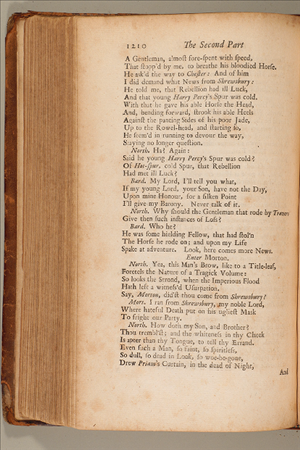 1210 The Second Part
A Gentleman, almost fore-spent with speed,
That stopp'd by me, to breathe his bloodied Horse.
He ask'd the way to Chester: And of him
I did demand what News from Shrewsbury:
He told me, that Rebellion had ill Luck,
And that young Harry Percy's Spur was cold.
With that he gave his able Horse the Head,
And, bending forward, strook his able Heels
Against the panting Sides of his poor Jade,
Up to the Rowel-head, and starting so,
He seem'd in running to devour the way,
Staying no longer question.
North. Ha! Again:
Said he young Harry Percy's Spur was cold?
Of Hot-Spur, cold Spur, that Rebellion
Had met ill Luck?
Bard. My Lord, I'll tell you what,
If my young Lord, your Son, have not the Day,
Upon mine Honour, for a silken Point
I'll give my Barony. Never talk of it.
North. Why should the Gentleman that rode by Travers
Give then such instances of Loss?
Bard. Who he?
He was some hielding Fellow, that had stol'n
The Horse he rode on; and upon my Life
Spake at adventure. Look, here comes more News.
Enter Morton.
North. Yea, this Man's Brow, like to a Title-leaf,
Foretels the Nature of a Tragick Volume:
So looks the Strond, when the Imperious Flood
Hath left a witness'd Usurpation.
Say, Morton, did'st thou come from Shrewsbury?
Mort. I ran from Shrewsbury, my noble Lord,
Where hateful Death put on his ugliest Mask
To fright our Party.
North. How doth my Son, and Brother?
Thou trembl'st; and the whiteness in thy Cheek
Is apter than thy Tongue, to tell thy Errand.
Even such a Man, so faint, so spiritless,
So dull, so dead in Look, so woe-be-gone,
Drew Priam's Curtain, in the dead of Night,
And